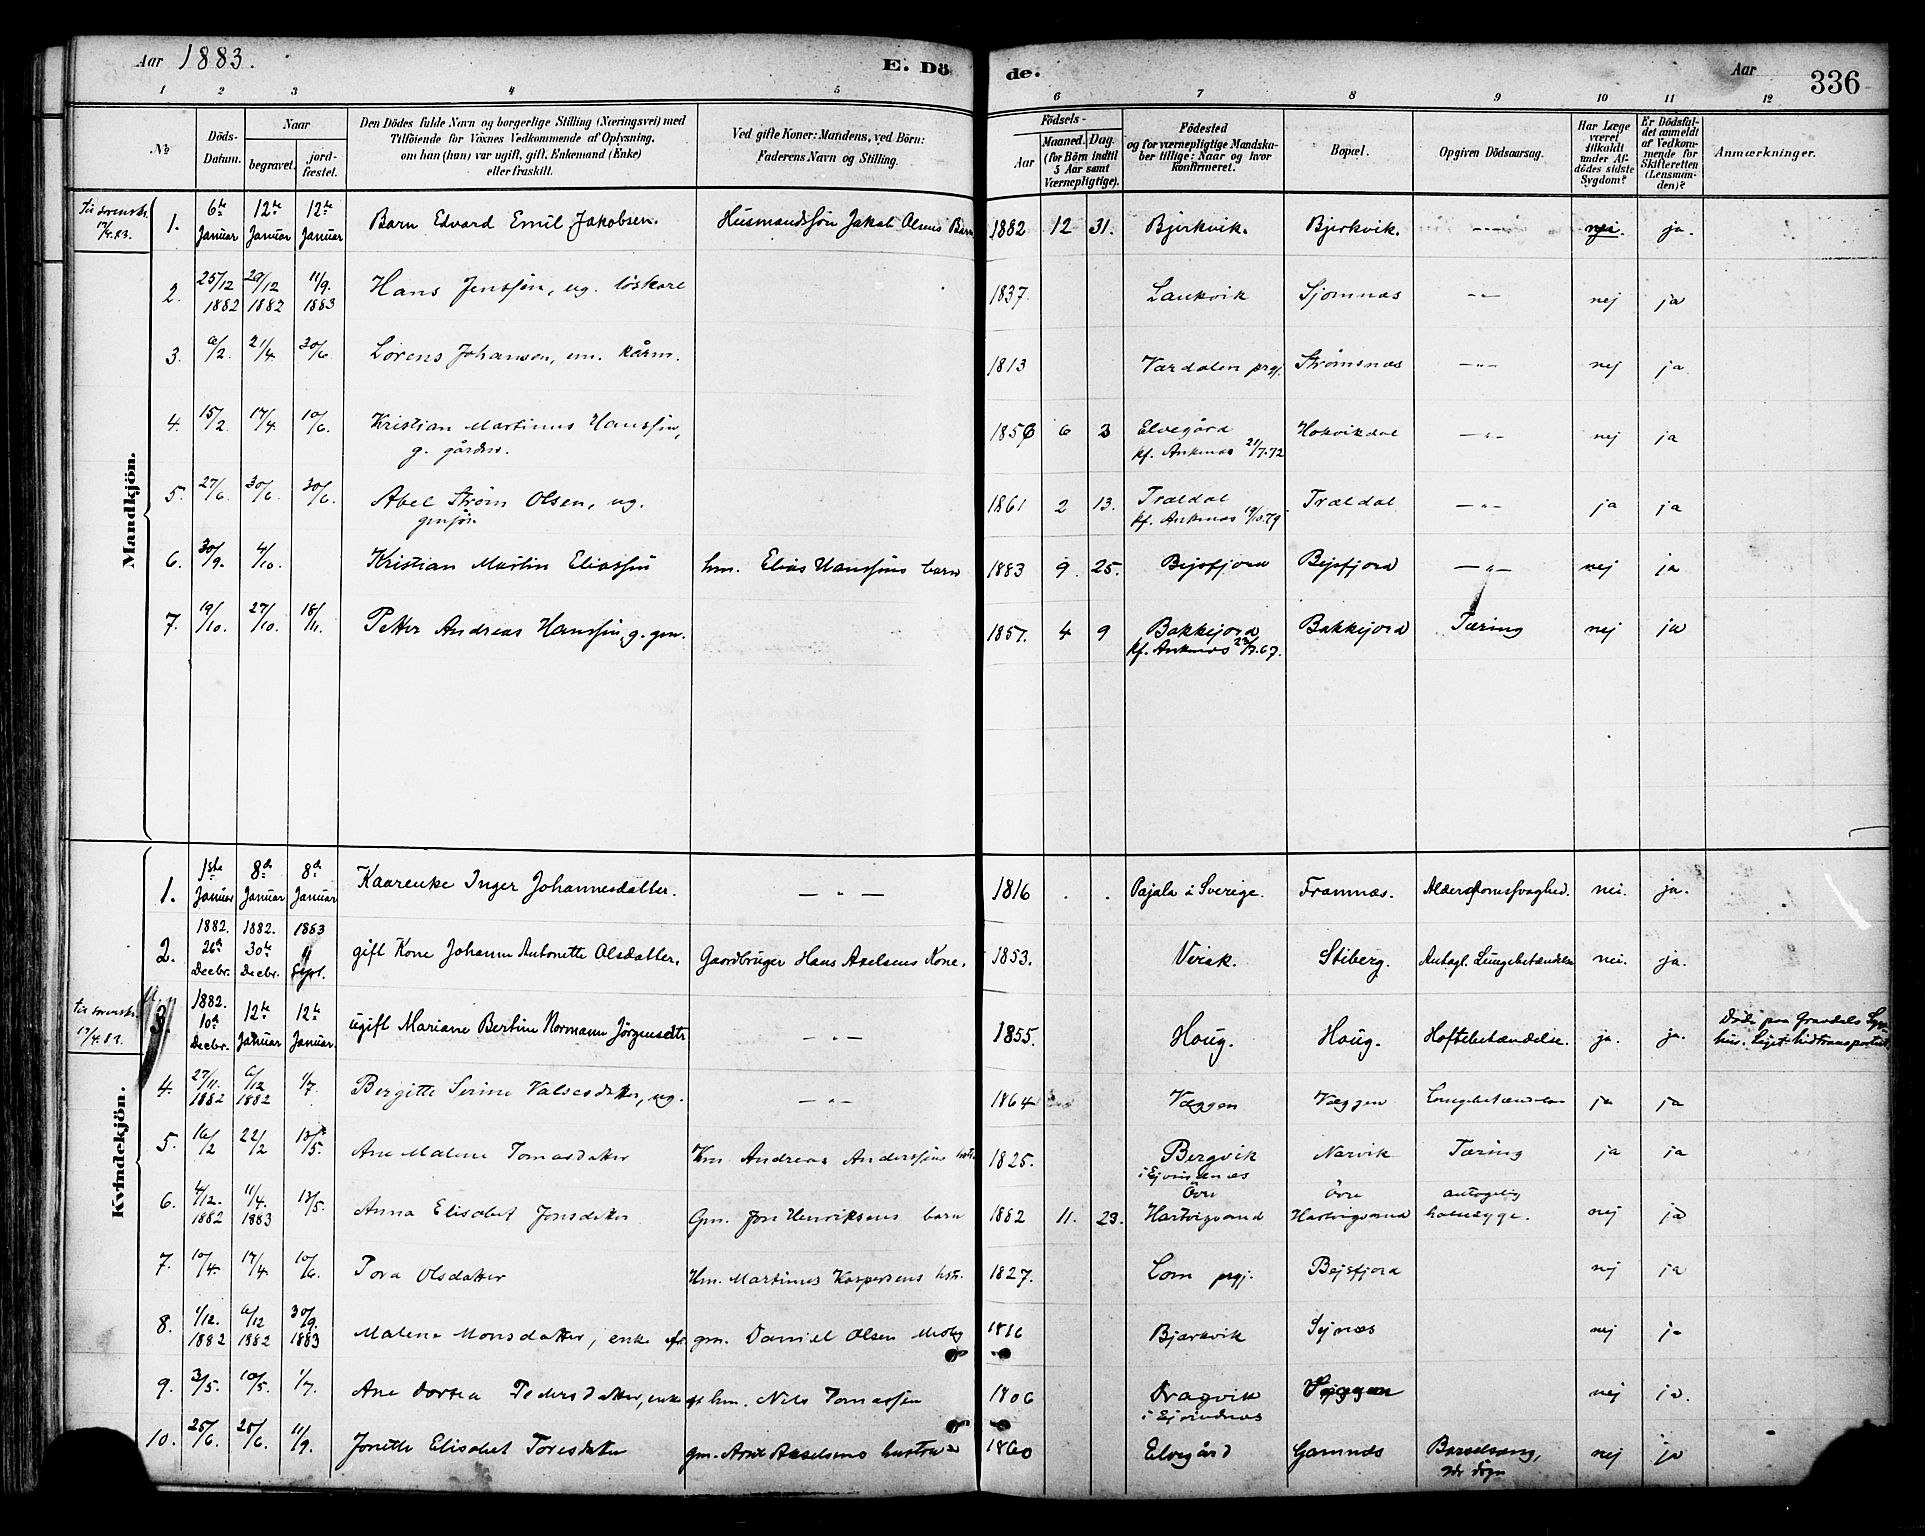 Aar 1883. E. Dö de. Aar 336
1 2 3 4 5 6 7 8 9 10 11 12
No Döds-Datum. Naar begravet. jord-fæstet. Den Dödes fulde Navn og borgerlige Stilling (Næringsvei) med Tilföiende for Voxnes Vedkommende af Oplysning, om han (hun) var ugift, gift, Enkemand (Enke) eller fraskilt. Ved gifte Koner: Mandens, ved Börn: Faderens Navn og Stilling. Födsels- Aar Maaned. Dag. (for Börn indtil 5 Aar samt Værnepligtige). Födested og for værnepligtige Mandskaber tillige: Naar og hvor konfirmeret. Bopæl. Opgiven Dödsaarsag. Har Læge været tilkaldt under Afdödes sidste Sygdom? Er Dödsfaldet anmeldt af Vedkommende for Skifteretten (Lensmanden)? Anmærkninger.
Mandkjön.
1. 6te Januar 12te Januar 12te Januar Barn Edvard Emil Jakobsen. Husmandssøn Jakob Olsens Barn 1882 12 31. Bjerkvik. Bjerkvik. nei. ja.
2. 25/12 1882 29/12 1882 11/9. 1883 Hans Jenssøn, ug. løskare 1837. Laukvik Sjomnæs -"- nej ja
3. 6/2. 21/4. 30/6. Lorens Johansen, em. kårm. 1813 Værdalen prgj. Strømsnæs -"- nej ja
4. 15/2. 17/4. 10/6. Kristian Martinus Hanssøn, g. gårdm. 1856 6 3 Elvegård kf. Ankenæs 21/7.72 Håkvikdal -"- nej ja
5. 27/6. 30/6. 30/6. Abel Strøm Olsen, ug. gmsøn 1861 2 13. Trældal kf. Ankenæs Trældal -"- ja ja
6. 30/9. 4/10. Kristian Martin Eliassøn hm. Elias Hanssøns barn 1883 9 25. Bejsfjord Bejsfjord -"- nej ja
7. 19/10. 27/10. 18/11. Petter Andreas Hanssøn, g. gm. 1851. 4 9 Bakkejord kf. Ankenæs Bakkejord Tæring nej ja
Kvindekjön.
1. 1ste Januar 8de Januar 8de Januar Kaarenke Inger Johannesdatter. — " — 1816 Pajala i Sverige. Framnæs. Alderdomssvaghed. nei. ja.
2. 1882. 26de Decbr. 1882. 30te Decbr. 1883 Sept. gift Kone Johanna Antonette Olsdatter. Gaardbruger Hans Axelsens Kone. 1853. Virak. Stiberg. Antagl. Lungebetændelse nei. ja.
3. 1882. 10de Decbr. 12te Januar 12te Januar. ugift Mariane Bertine Normann Jörgensdtr — " — 1855. Houg. Houg. Hoftebetændelse. ja. ja. Døde paa
4. 27/11. 1882 6/12 1882 1/7. Bergitte Serine Valsesdatter, ug. — " — 1864 Væggen Væggen Lungebetændelse ja ja
5. 16/2 22/2 13/5. Ane Malene Tomasdatter Km. Andreas Anderssøns hstr. 1825. Bergvik i Ejvindnæs Narvik Tæring ja ja
6. 4/12. 1882 11/4. 1883 13/5. Anna Elisabet Jonsdatter Gm. Jon Henriksens barn 1882 11. 23. Övre Hartvigvand Övre Hartvigvand antagelig halssyge. nej ja
7. 10/4. 17/4. 10/6. Tora Olsdatter Hm. Martines Kaspersens hstr. 1827. Lom prgj. Bejsfjord nej ja
8. 1/12. 1882 6/12 1882 30/9. 1883 Malene Monsdatter, enke af gm. Daniel Olsen 1816 Bjærkvik Sejnæs nej ja
9. 3/5. 10/5. 1/7. Ane Dortea Pedersdatter, enke af hm. Nils Tomassøn 1806 Dragvik i Ejvindnæs nej ja
10. 25/6. 25/6. 11/9. Jonette Elisabet Toresdatter gm. Axelsens hustru 1860 Elvegård Gamnæs Barselseng, nej ja